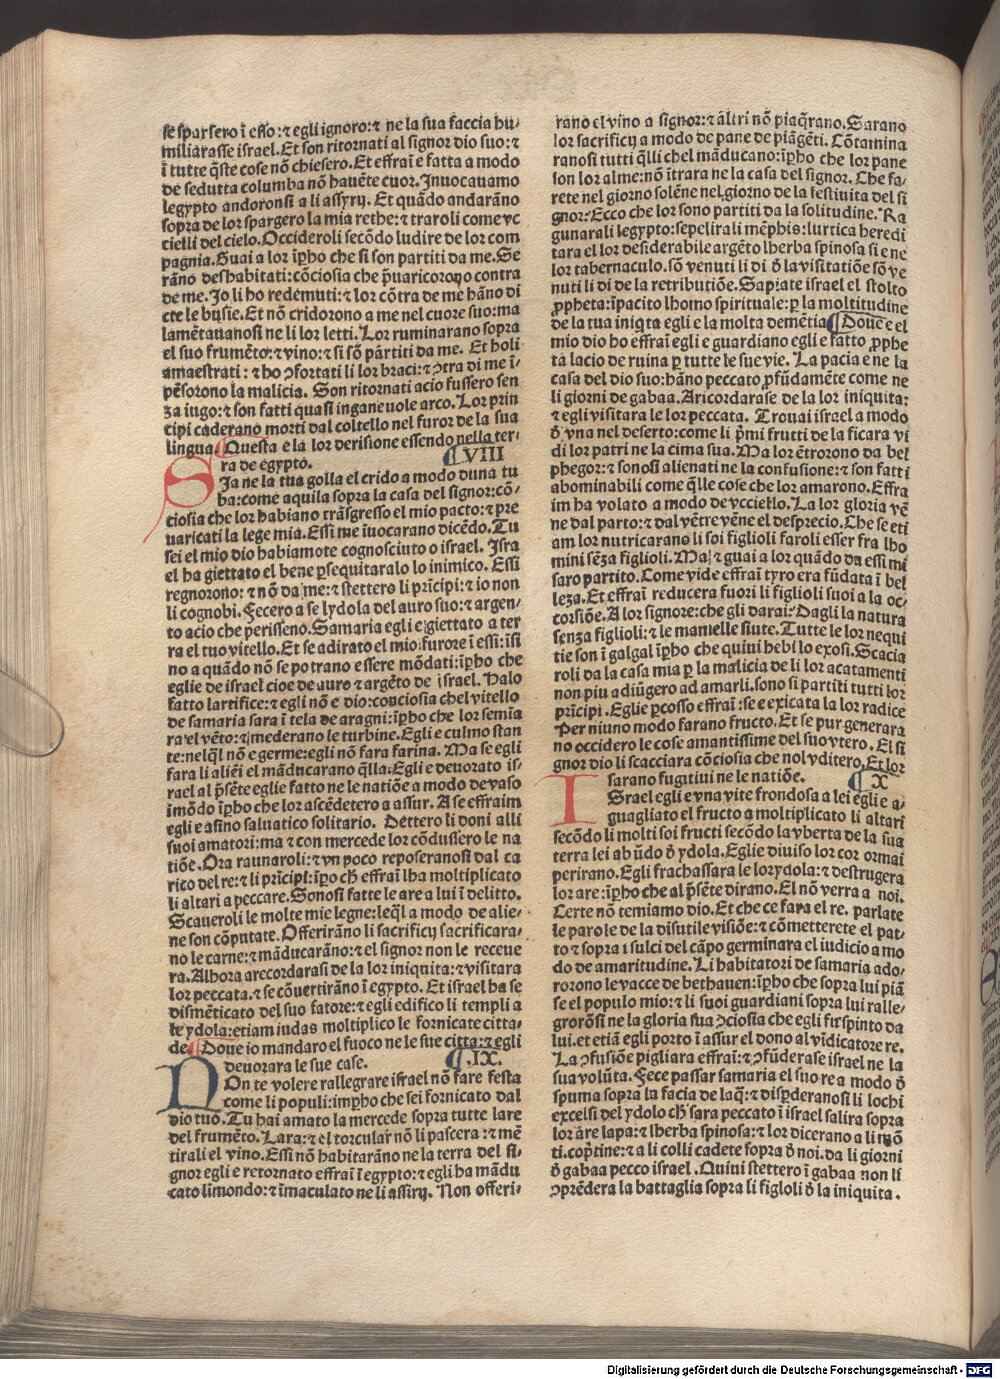 se sparsero ĩ esso:⁊ egli ignoro:⁊ ne la sua faccia hu/
miliarasse israel. Et son ritornati al signor dio suo:⁊
ĩ tutre q̃ste cose nõ chiesero. Et effraĩ e fatta a modo
de sedutta columba nõ hauẽte cuor. Inuocauamo
legypto andoronsi a li assyrij. Et quãdo andarãno
sopra de lor spargero la mia rethe:⁊ traroli come vc
cielli del cielo. Occideroli secõdo ludire de lor com
pagnia. Guai a lor ip̃ho che si son partiti da me. Se
rãno deshabitati: cõciosia che p̃uaricorono contra
de me. Io li ho redemuti:⁊ lor cõtra de me hãno di
cte le busie. Et nõ cridorono a me nel cuore suo: ma
lamẽtauanosi ne li lor letti. Lor ruminarano sopra
el suo frumẽto:⁊ vino:⁊ si sõ pàrtiti da me. Et holi
amaestrati:⁊ ho ꝯfortati li lor braci:⁊ ꝯtra di me ĩ/
pẽsorono la malicia. Son ritornati acio fussero sen
za iugo:⁊ son fatti quasi inganeuole arco. Lor prin
cipi caderano morti dal coltello nel furor de la sua
lingua. ¶ Questa e la lor derisione essendo nella ter/
ra de egypto. ¶ VIII
SIa ne la tua golla el crido a modo duna tu
ba: come aquila sopra la casa del signor: cõ/
ciosia che lor habiano trãsgresso el mio pacto:⁊ pre
uaricati la lege mia. Essi me ĩuocarano dicẽdo. Tu
sei el mio dio habiamote cognosciuto o israel. Isra
el ha giettato el bene p̱sequitaralo lo inimico. Essi
regnorono:⁊ nõ da me:⁊ stettero li prĩcipi:⁊ io non
li cognobi. Fecero a se lydola del auro suo:⁊ argen/
to acio che perisseno. Samaria egli e giettato a ter
ra el tuo vitello. Et se adirato el mio furore ĩ essi: ĩsi
no a quãdo nõ se potrano essere mõdati: ip̃ho che
eglie de israel cioe de auro ⁊ argẽto de israel. Halo
fatto lartifice:⁊ egli nõ e dio: conciosia chel vitello
de samaria sara ĩ tela de aragni: ip̃ho che lor semĩa
ra el vẽto:⁊ mederano le turbine. Egli e culmo stan
te: nelq̃l nõ e germe: egli nõ fara farina. Ma se egli
fara li aliẽi el mãducarano q̃lla. Egli e deuorato is/
rael al p̃sẽte eglie fatto ne le natiõe a modo de vaso
ĩmõdo ip̃ho che lor ascẽdetero a assur. A se effraim
egli e asino saluatico solitario. Dettero li doni alli
suoi amatori: ma ⁊ con mercede lor cõdussero le na
tiõe. Ora raunaroli:⁊ vn poco reposeranosi dal ca
rico del re:⁊ li prĩcipi: ip̃o ch̃ effraĩ lha moltiplicato
li altari a peccare. Sonosi fatte le are a lui ĩ delitto.
Scaueroli le molte mie legne: leq̃l a modo de alie/
ne son cõputate. Offerirãno li sacrificij sacrificara/
no le carne:⁊ mãducarãno:⁊ el signor non le receue
ra. Alhora arecordarasi de la lor iniquita:⁊ visitara
lor peccata.⁊ se cõuertirãno ĩ egypto. Et israel ha se
dismẽticato del suo fatore:⁊ egli edifico li templi a
le ydola: etiam iudas moltiplico le fornicate citta/
de. ¶ Doue io mandaro el fuoco ne le sue citta:⁊ egli
deuorara le sue case. ¶ .IX.
NOn te volere rallegrare israel nõ fare festa
come li populi: imp̱ho che sei fornicato dal
dio tuo. Tu hai amato la mercede sopra tutte lare
del frumẽto. Lara:⁊ el torcular nõ li pascera:⁊ mẽ
tirali el vino. Essi nõ habitarãno ne la terra del si/
gnor egli e retornato effraĩ ĩ egypto:⁊ egli ha mãdu
cato lĩmondo:⁊ ĩmaculato ne li assirij. Non offeri/
rano el vino a signor:⁊ altri nõ piaq̃rano. Sarano
lor sacrificij a modo de pane de piãgẽti. Cõtamina
ranosi tutti q̃lli chel mãducano: ip̱ho che lor pane
son lor alme: nõ ĩtrara ne la casa del signor. Che fa/
rete nel giorno solẽne nel giorno de la festiuita del si
gnor: Ecco che lor sono partiti da la solitudine. Ra
gunarali legypto: sepelirali mẽphis: lurtica heredi
tara el lor desiderabile argẽto lherba spinosa si e ne
lor tabernaculo. sõ venuti li di ð la visitatiõe sõ ve
nuti li di de la retributiõe. Sapiate israel el stolto
ꝓpheta: ĩpacito lhomo spirituale: ꝑ la moltitudine
de la tua iniq̃ta egli e la molta demẽtia ¶ Doue e el
mio dio ho effraĩ egli e guardiano egli e fatto ꝓphe
ta lacio de ruina ꝑ tutte le sue vie. La pacia e ne la
casa del dio suo: hãno peccato ꝓfũdamẽte come ne
li giorni de gabaa. Aricordarase de la lor iniquita:
⁊ egli visitara le lor peccata. Trouai israel a modo
ð vna nel deserto: come li p̃mi frutti de la ficara vi
di lor patri ne la cima sua. Ma lor ẽtrorono da bel
phegor:⁊ sonosi alienati ne la confusione:⁊ son fatti
abominabili come q̃lle cose che lor amarono. Effra
im ha volato a modo de vcciello. La lor gloria vẽ
ne dal parto:⁊ dal vẽtre vẽne el desprecio. Che se eti
am lor nutricarano li soi figlioli faroli esser fra lho
mini sẽza figlioli. Ma ⁊ guai a lor quãdo da essi mi
saro partito. Come vide effraĩ tyro era fũdata ĩ bel
leza. Et effraĩ reducera fuori li figlioli suoi a la oc/
corsiõe. A lor signore: che gli darai: Dagli la natura
senza figlioli:⁊ le mamelle siute. Tutte le lor nequi
tie son ĩ galgal ip̱ho che quiui hebi lo exosi. Scacia
roli da la casa mia ꝑ la malicia de li lor acatamenti
non piu adiũgero ad amarli. sono si partiti tutti lor
prĩcipi. Eglie ꝑcosso effraĩ: se e exicata la lor radice
Per niuno modo farano fructo. Et se pur generara
no occidero le cose amantissime del suo vtero. El si
gnor dio li scacciara cõciosia che nol vditero. Et lor
sarano fugitiui ne le natiõe. ¶ X
ISrael egli e vna vite frondosa a lei egli e a/
guagliato el fructo a moltiplicato li altari
secõdo li molti soi fructi secõdo la vberta de la sua
terra lei abũdo ð ydola. Eglie diuiso lor cor ormai
perirano. Egli frachassara le lor ydola:⁊ destrugera
lor are: ip̃ho che al p̃sẽte dirano. El nõ verra a noi.
Certe nõ temiamo dio. Et che ce fara el re. parlate
le parole de la disutile visiõe:⁊ cõmetterete el pat/
to ⁊ sopra i sulci del cãpo germinara el iudicio a mo
do de amaritudine. Li habitatori de samaria ado/
rorono le vacce de bethauen: ip̃ho che sopra lui piã
se el populo mio:⁊ li suoi guardiani sopra lui ralle/
grorõsi ne la gloria sua ꝯciosia che egli fu spinto da
lui. et etiã egli porto ĩ assur el dono al vidicatore re.
La ꝯfusiõe pigliara effraĩ:⁊ ꝯfũderase israel ne la
sua volũta. Fece passar samaria el suo re a modo ð
spuma sopra la facia de laq̃:⁊ disp̱deranosi li lochi
excelsi del ydolo ch̃ sara peccato ĩ israel salira sopra
lor are lapa:⁊ lherba spinosa:⁊ lor dicerano a li mõ
ti. cop̱tine:⁊ a li colli cadete sopra ð noi. da li giorni
ð gabaa pecco israel. Quiui stettero ĩ gabaa non li
ꝯprẽdera la battaglia sopra li figloli ð la iniquita.
Digitalisierung gefördert durch die Deutsche Forschungsgemeinschaft - DFG